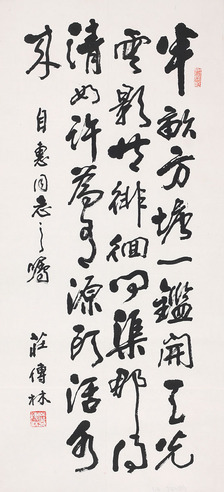 半畝方塘一鑑開天光
雲影共徘徊問渠那得
清如許為有源頭活水
來
自惠同志之囑
莊傳林